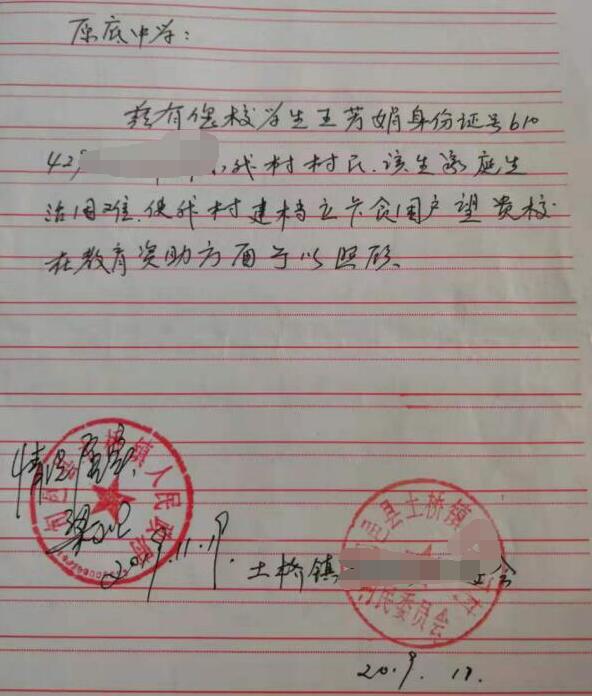 原底中学：
兹有你校学生王芳娟身份证号610
42 我村村民，该生家庭生
活困难，使我村建档立卡贫困户望贵校
在教育资助方面予以照顾。
桥镇人民政府
情况属实
2019.11.19.
县土桥镇
村民委员会
土桥镇 会
2019.11.